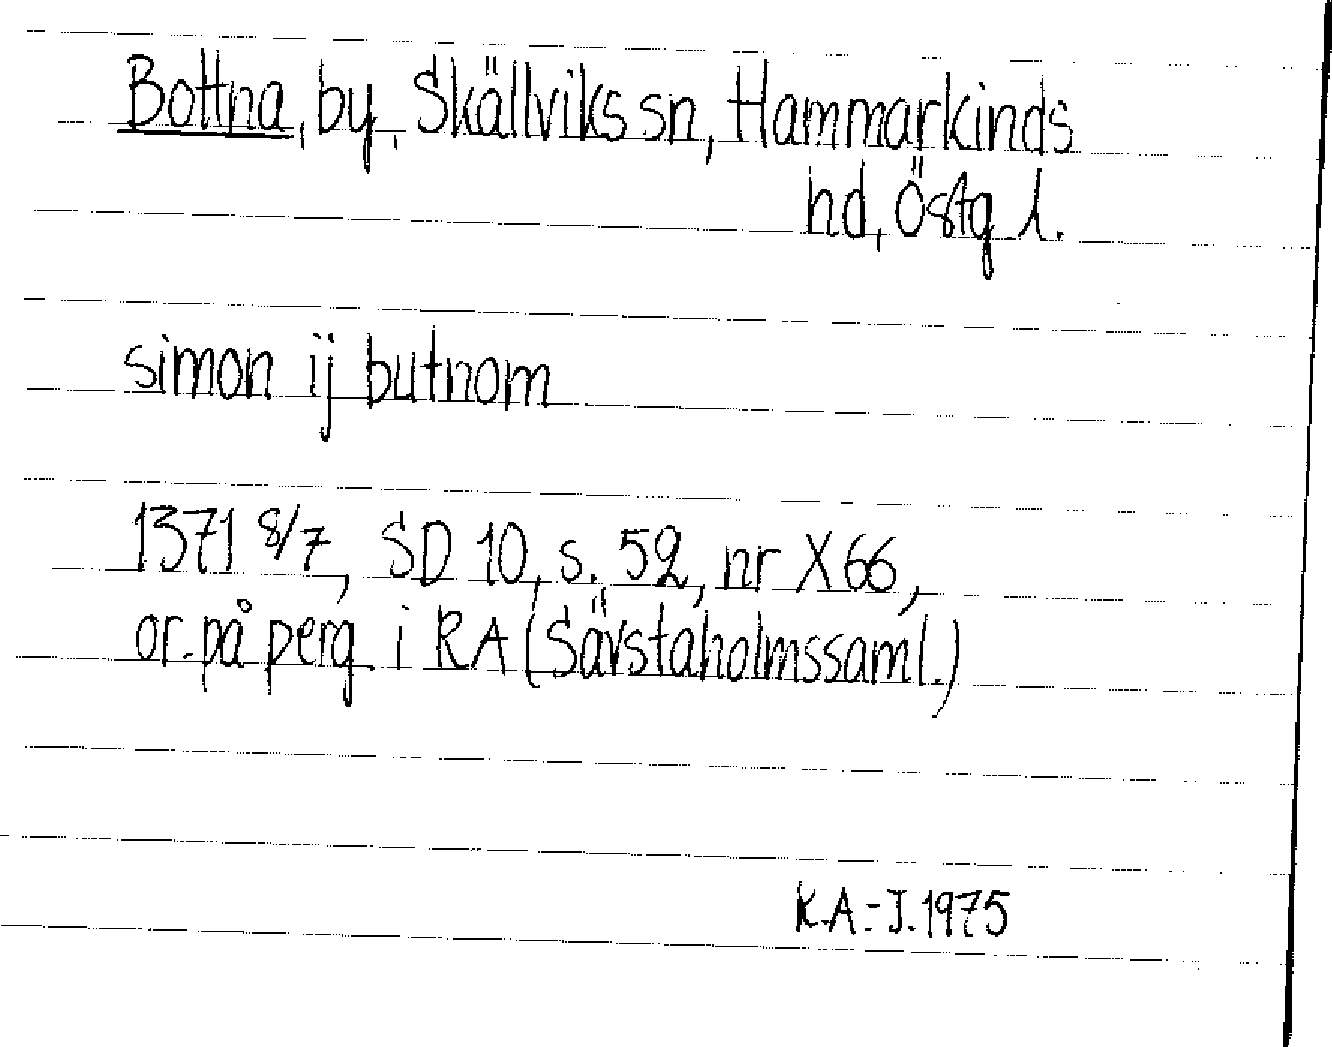 Bottna, by, Skällviks sn, Hammarkinds
hd, Östg l.
simon ij butnom
1371 8/7, SD 10, s. 52, nr X66,
or. på perg i RA (Sävstaholmssaml.)
K.A.-J. 1975